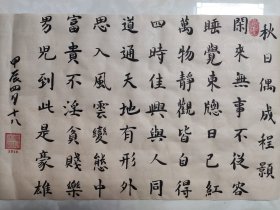 秋日偶成程顥
閑來無事不從容
睡覺東牕日已紅
萬物靜觀皆自得
四時佳興與人同
道通天地有形外
思入風雲變態中
富貴不淫貧賤樂
男兒到此是豪雄
甲辰四月十八